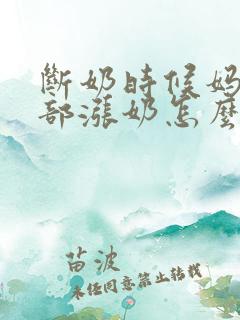 斷奶時候媽
部漲奶怎麼
苗波
未经同意禁止转载